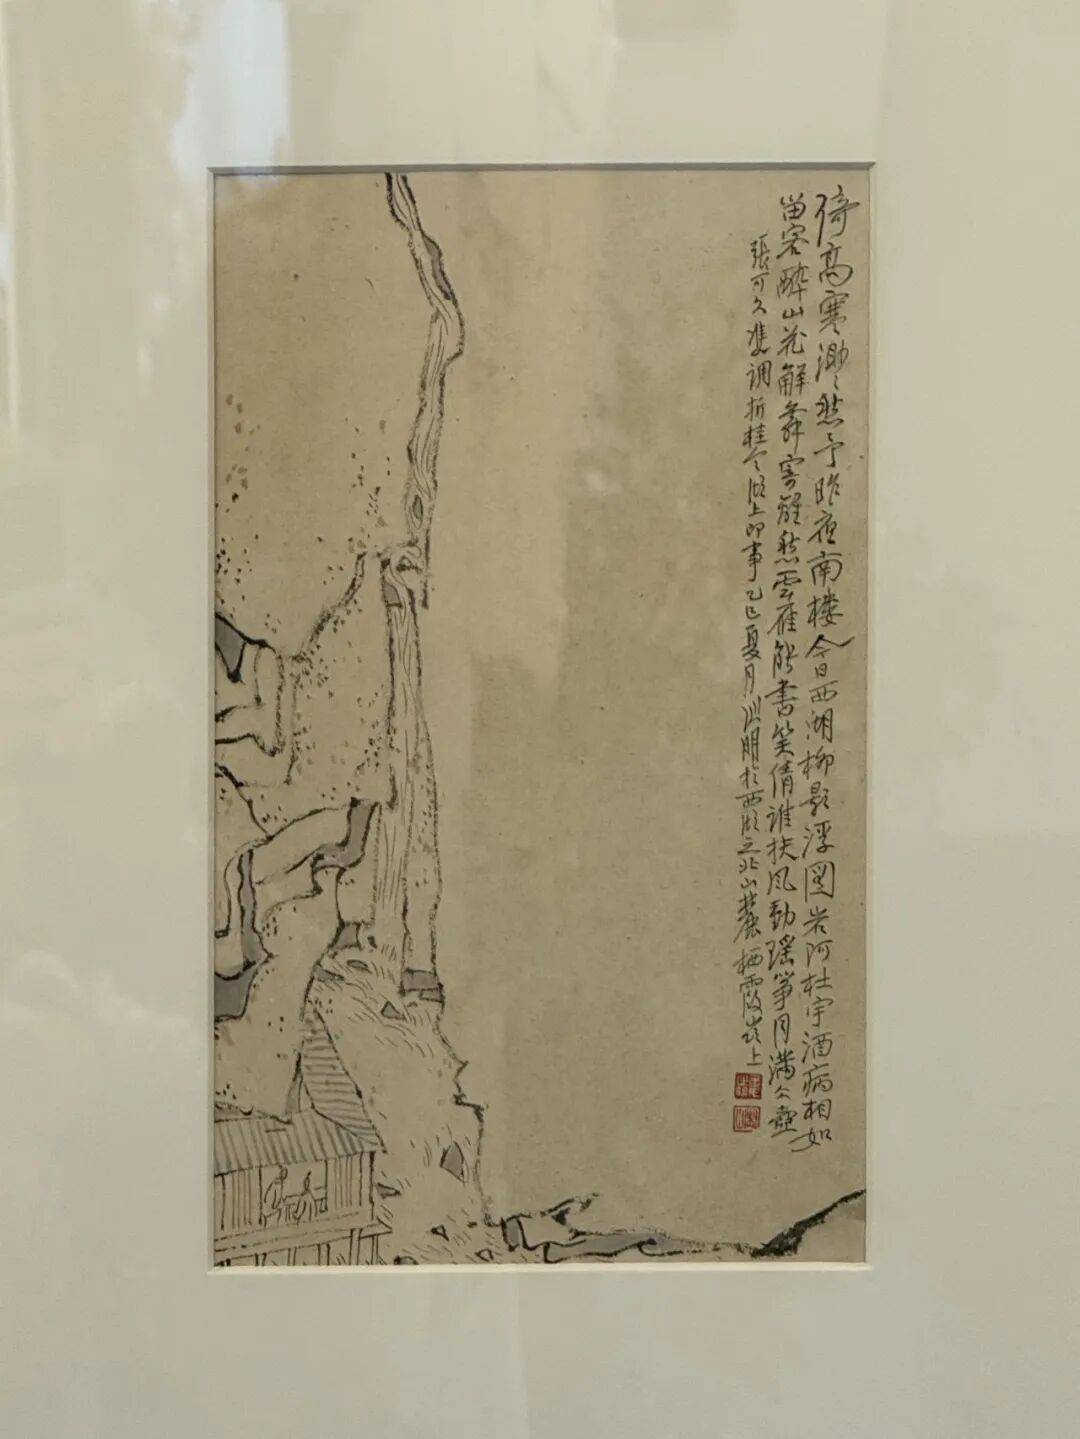 倚高寒渺〻愁予昨夜南楼今日西湖柳影浮图岩阿杜宇酒病相如
畄客醉山花解舞寄離愁雲雁能書笑倩谁扶风動瑶筝月满冰壺
張可久雙调折桂令湖上即事乙巳夏月於西湖之北山麓栖霞岭上